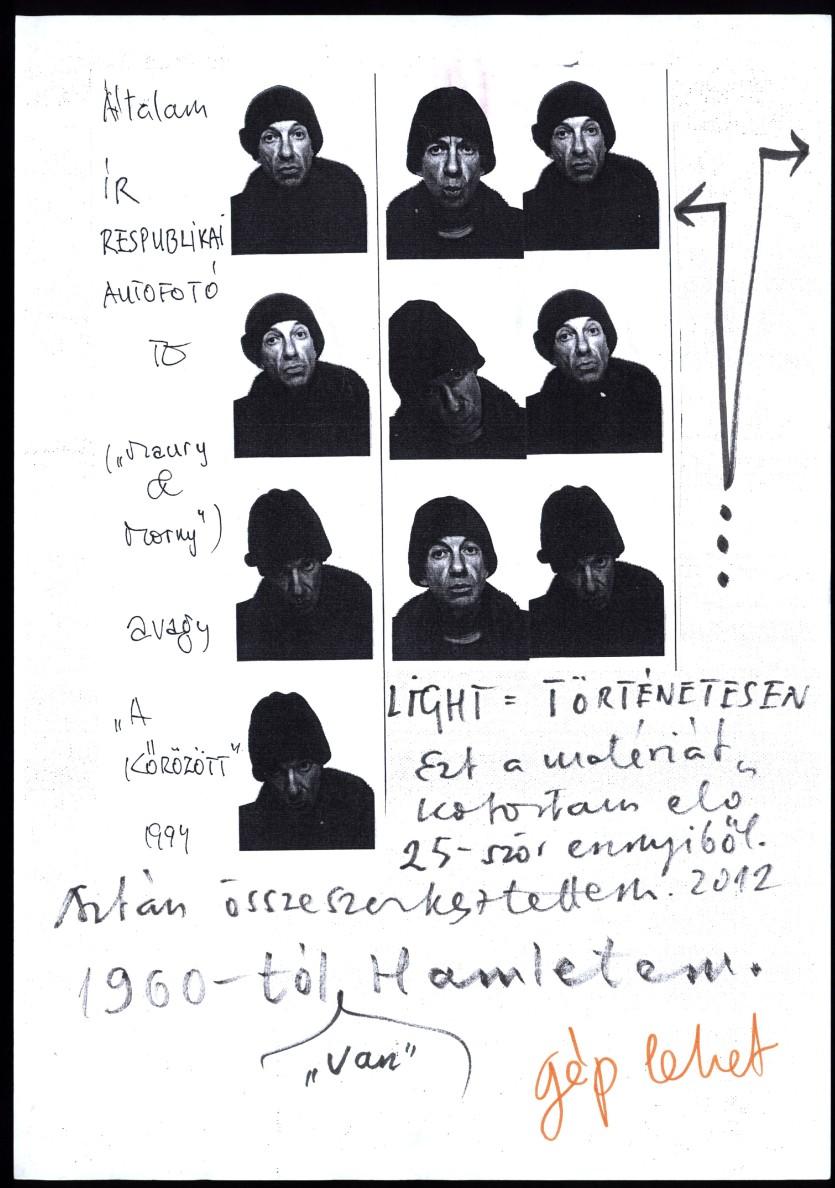 Általam
ÍR
RESPUBLIKAI
AUTOFOTÓ
("Maury
&
Morny")
avagy
"A
KŐRÖZÖTT"
1994
LIGHT = TÖRTÉNETESEN
Ezt a matériát
kotortam elő
25-ször ennyiből.
Aztán összeszerkesztettem. 2012
1960-tól Hamletem.
"van"
gép lehet